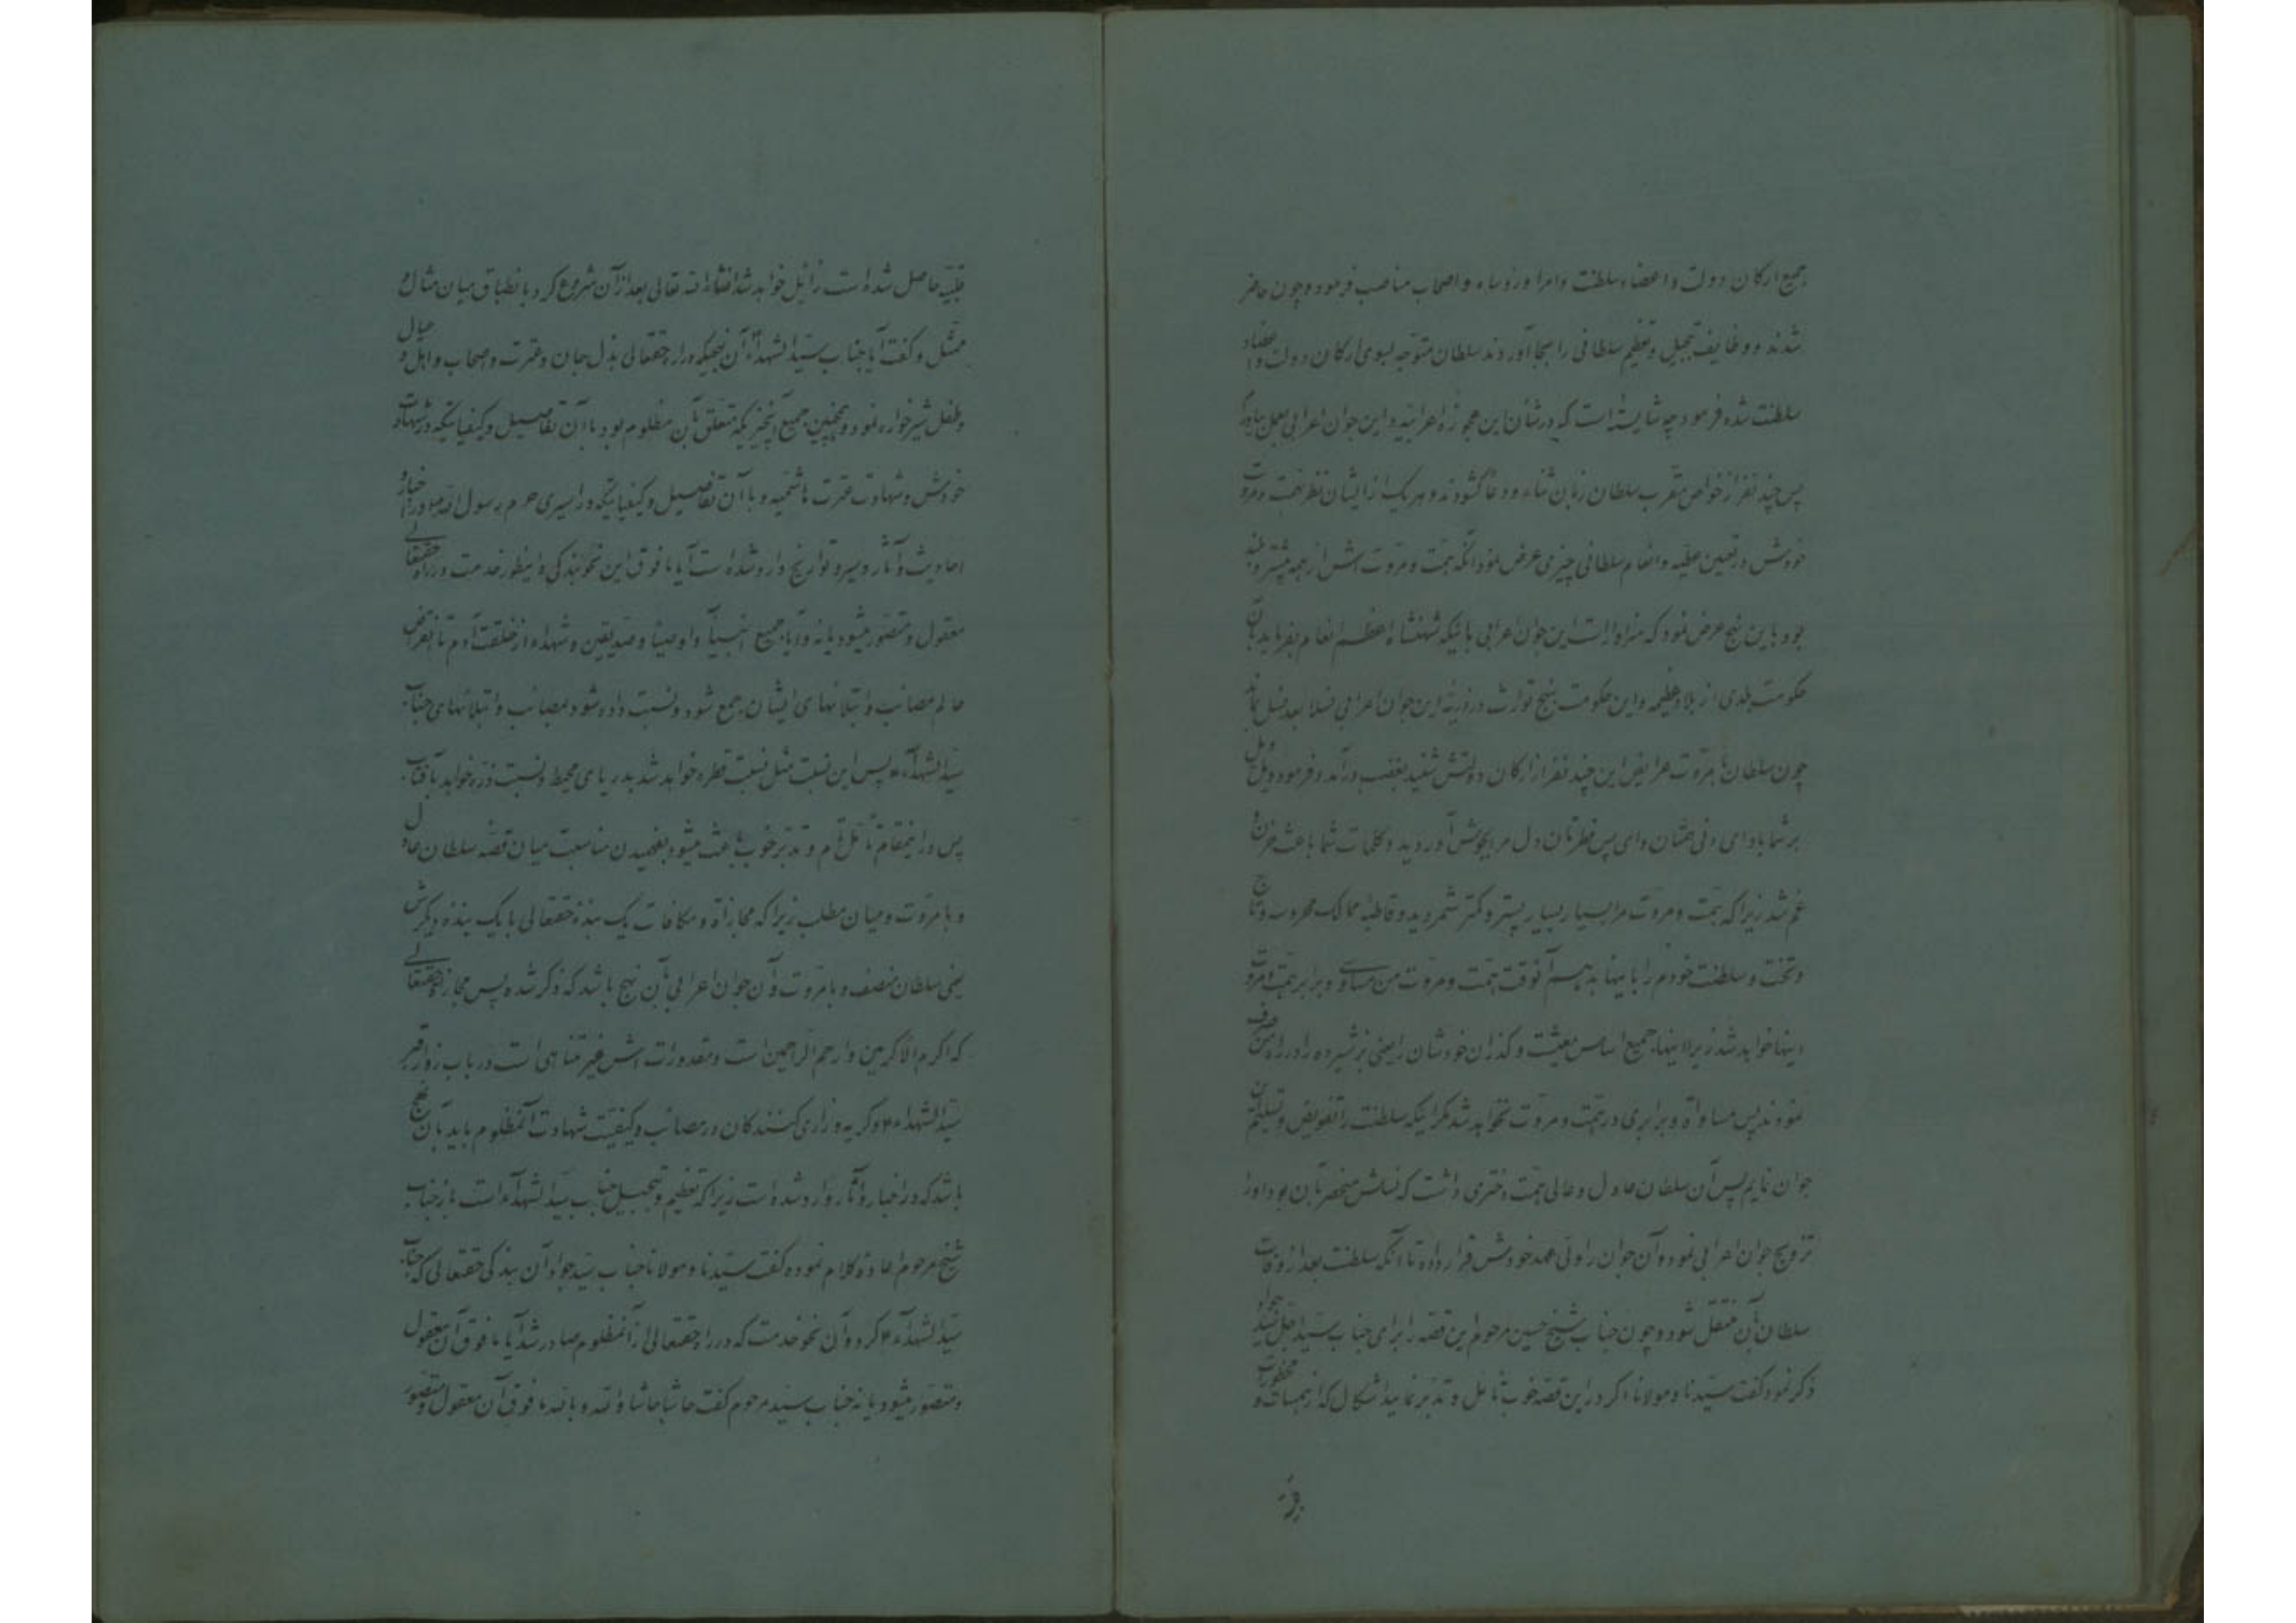 جمیع ارکان دولت و اعضاء سلطنت و امرا و رؤساء و اصحاب مناصب فرمود و چون حاضر
شدند و وظایف تبجیل و تعظیم سلطانی را بجا آوردند سلطان متوجه بسوی ارکان دولت و اعضاء
سلطنت شده فرمود چه شایسته است که در شأن این عجوزه اعرابیه و این جوان اعرابی بعمل بیاورم
پس چند نفر از خواص مقرب سلطان زبان ثناء و دعا گشودند و هر یک از ایشان نظر بهمت و مروت
خودش در تعیین عطیه و انعام سلطانی چیزی عرض نمود آنکه همت و مروت اش از همه بیشتر و بلند
بود باین نهج عرض نمود که سزاوار است این جوان اعرابی باینکه شهنشاه اعظم انعام بفرماید بآن
حکومت بلدی از بلاد عظیمه و این حکومت بنهج توارث در ذریه این جوان اعرابی نسلا بعد نسل بماند
چون سلطان با مروت عرایض این چند نفر از ارکان دولتش شنید بغضب درآمد و فرمود ویل و ویل
بر شما باد ای دنی همتان و ای پس فطرتان دل مرا بجوش آوردید و کلمات شما باعث حزن و
غم شد زیرا که همت و مروت مرا بسیار بسیار پستر و کمتر شمردید و قاطبه ممالک محروسه و تاج
و تخت و سلطنت خودم را باینها بدهم آنوقت همت و مروت من مساوی و برابر همت و مروت
اینها نخواهد شد زیرا اینها جمیع اساس معیشت و گذران خودشان را یعنی بز شیرده را در راه من صرف
نمودند پس مساواة و برابری در همت و مروت نخواهد شد مگر اینکه سلطنت را تفویض و تسلیم این
جوان نمایم پس آن سلطان عادل و عالی همت دختری داشت که نسلش منحصر بآن بود او را
تزویج جوان اعرابی نمود و آن جوان را ولی عهد خودش قرار داده تا آنکه سلطنت بعد از وفات
سلطان بآن منتقل شود و چون جناب شیخ حسین مرحوم این قصه را برای جناب سید اجل سید جواد
ذکر نمود گفت سیدنا و مولانا اگر در این قصه خوب تأمل و تدبر نمایید اشکال که از هجسات و خطورات
قلبیه حاصل شده است زائل خواهد شد انشاء الله تعالی بعد از آن شروع کرد بانطباق میان مثال و
ممثل و گفت آیا جناب سید الشهداء آن نهجیکه در راه حقتعالی بذل جان و عترت و اصحاب و اهل و عیال
و طفل شیرخواره نمود و همچنین جمیع آنچیزیکه متعلق بآن مظلوم بود با آن تفاصیل و کیفیاتیکه در شهادت
خودش و شهادت عترت هاشمیه و با آن تفاصیل و کیفیاتیکه در اسیری حرم رسول الله ص در اخبار و
احادیث و آثار و سیر و تواریخ وارد شده است آیا ما فوق این نحو بندگی و اینطور خدمت در راه حقتعالی
معقول و متصور میشود یا نه و آیا جمیع انبیآء و اوصیآء و صدیقین و شهداء از خلقت آدم تا انقراض
عالم مصائب و ابتلائهای ایشان جمع شود و نسبت داده شود بمصائب و ابتلائهای جناب
سید الشهدآء ع پس این نسبت مثل نسبت قطره خواهد شد بدریای محیط و نسبت ذره خواهد بآفتاب
پس در اینمقام تأمل تام و تدبر خوب باعث میشود بفهمیدن مناسبت میان قصه سلطان عادل
و با مروت و میان مطلب زیرا که مجازاة و مکافات یک بنده حقتعالی با یک بنده دیگرش
یعنی سلطان منصف و با مروت و آن جوان اعرابی بآن نهج باشد که ذکر شده پس مجازاة حقتعالی
که اکرم الاکرمین و ارحم الراحمین است و مقدورات اش غیر متناهی است در باب زوار قبر
سید الشهداء ع و گریه و زاری کنندگان در مصائب و کیفیت شهادت آنمظلوم باید بآن نهج
باشد که در اخبار و آثار وارد شده است زیرا که تعظیم و تبجیل جناب سید الشهدآء است باز جناب
شیخ مرحوم اعاده کلام نموده گفت سیدنا و مولانا جناب سید جواد آن بندگی حقتعالی که جناب
سید الشهدآء ع کرد و آن نحو خدمت که در راه حقتعالی از آنمظلوم صادر شد آیا ما فوق آن معقول
و متصور میشود یا نه جناب سید مرحوم گفت حاشا حاشا والله و بالله ما فوق آن معقول و متصور